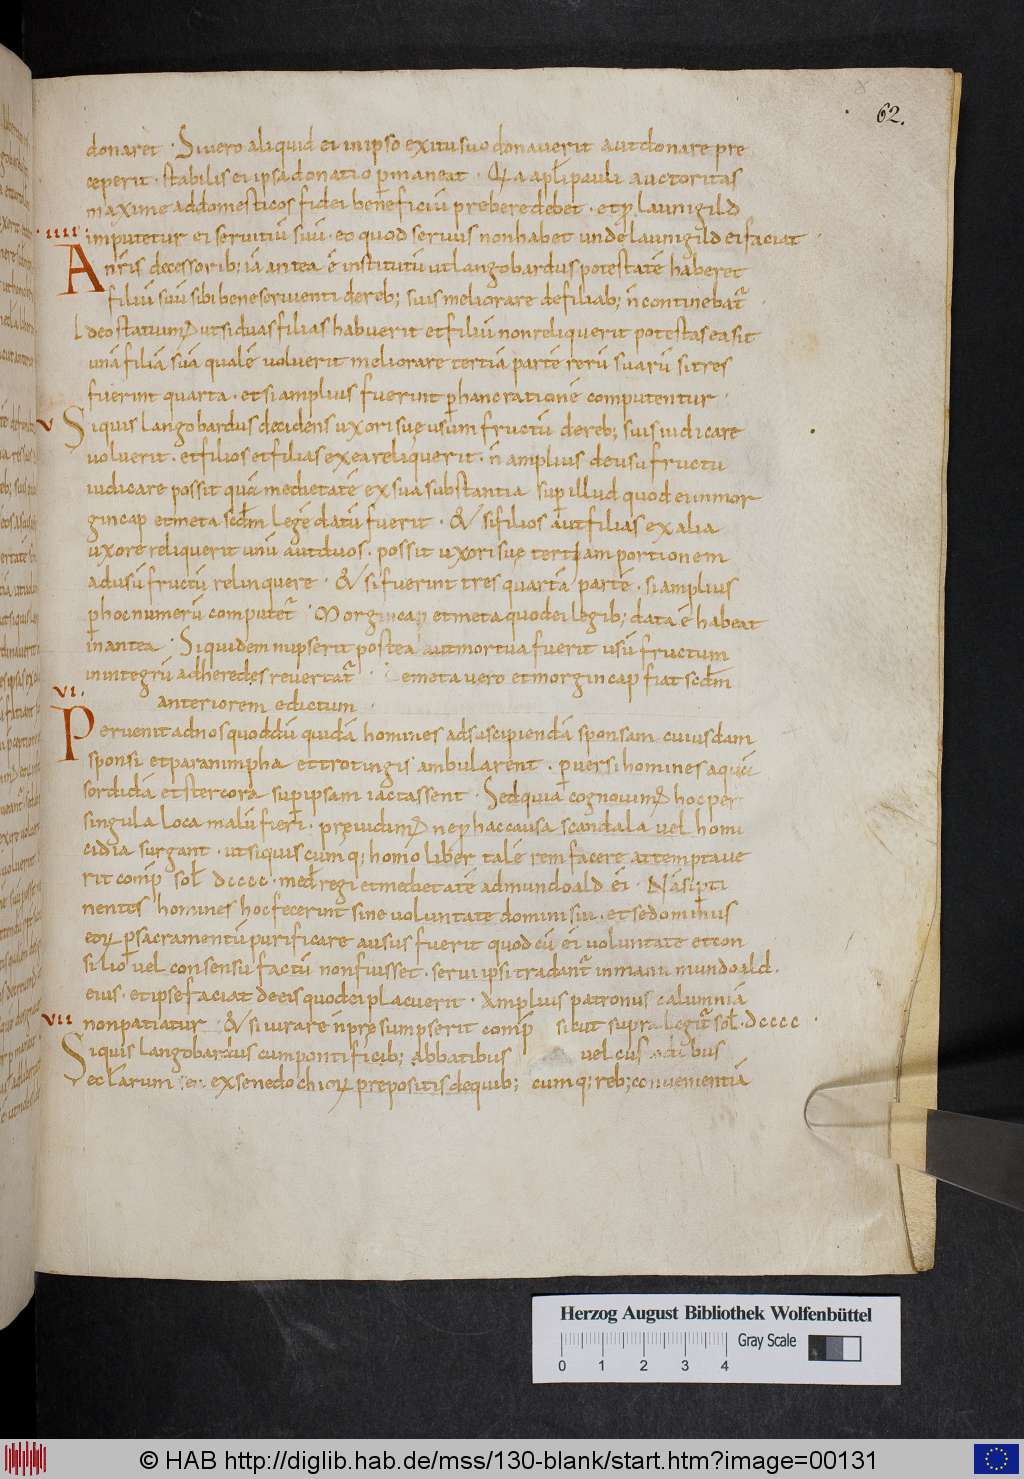 62.
donaret · Si vero aliquid ei in ipso exitu suo donaverit aut donare pre
ceperit · stabilis ei ipsa donatio p̄maneat · Quia apl̄i pauli auctoritas
maxime ad domesticos fidei beneficiū prebere debet · et ꝓ launigild
imputetur ei servitiū suū · eo quod servus non habet unde launigild ei faciat ·
IIII A nr̄is decessorib; iā antea ē institutū ut langobardus potestatē haberet
filiū suū sibi bene servienti de reb; suis meliorare de filiab; n̄ continebat᷑ ·
Ideo statuim᷒ ut si duas filias habuerit et filiū non reliquerit potestas ea sit
unā filiā suā qualē voluerit meliorare tertiā partē rerū suarū si tres
fuerint quarta · et si amplius fuerint p̄ hanc rationē computentur ·
V Siquis langobardus decidens uxori suę usum fructū de reb; suis iudicare
voluerit · et filios et filias ex ea reliquerit · n̄ amplius de usu fructu
iudicare possit quā medietatē ex sua substantia sup̄ illud quod ei in mor
gincap et meta scdm̄ legē datū fuerit · & si filios aut filias ex alia
uxore reliquerit unū aut duos · possit uxori suę tertiam portionem
ad usū fructū relinquere · & si fuerint tres quartā partē · si amplius
p̄ hoc numerū computet᷑ · Morgincap et meta quod ei legib; data ē habeat
in antea · Si quidem nupserit postea aut mortua fuerit usū fructum
in integrū ad heredes revertat᷑ · De meta vero et morgincap fiat scdm̄
anteriorem edictum ·
VI · Pervenit ad nos quod dū quidā homines ad suscipiendā sponsam cuiusdam
sponsi et paranimpha et trotingis ambularent · p̄versi homines aquā
sordidā et stercora sup̄ ipsam iactassent · Sed quia cognovim᷒ hoc per
singula loca malū fieri · previdim᷒ ne p̄ hac causa scandala vel homi
cidia surgant · ut siquiscumq; homo liber talē rem facere attemptave
rit comp̄ sol̄ dcccc · med̄ regi et medietatē ad mundoald ei · Nā si p̄ti
nentes homines hoc fecerint sine voluntate domini sui · et se dominus
eoꝝ p̄ sacramentū purificare ausus fuerit quod cū ei voluntate et con
silio vel consensu factū non fuisset · servi ipsi tradant᷑ in manu mundoald ·
eius · et ipse faciat de eis quod ei placuerit · Amplius patronus calumniā
non patiatur · & si iurare n̄ presumpserit comp̄ sicut supra legit᷑ sol̄ · dcccc ·
VII Siquis langobardus cum pontificib; abbatibus vel custodibus
ecl̄arum seu exsenedochioꝝ prepositis de quib;cumq; reb; convenientiā
Herzog August Bibliothek Wolfenbüttel
Gray Scale
0 1 2 3 4
© HAB http://diglib.hab.de/mss/130-blank/start.htm?image=00131